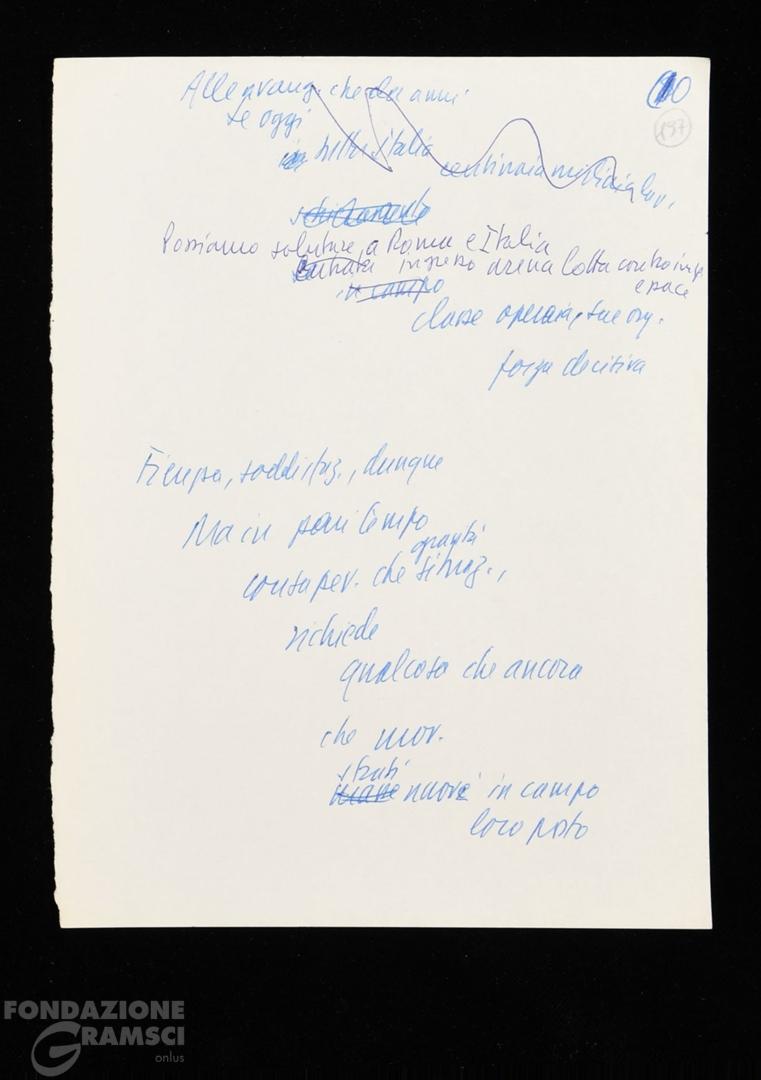 10
197
Alle avang. che da anni
se oggi
in tutta Italia centinaia migliaia lav.
Possiamo salutare, a Roma e Italia
entrata ingresso arena lotta contro
in campo e pace
classe operaia, sue org.
forza decisiva
Fierezza, soddisfaz., dunque
Ma in pari tempo
gravità
consapev. che situaz.,
richiede
qualcosa che ancora
che mov.
strati
nuovi in campo
loro posto
FONDAZIONE
GRAMSCI
onlus